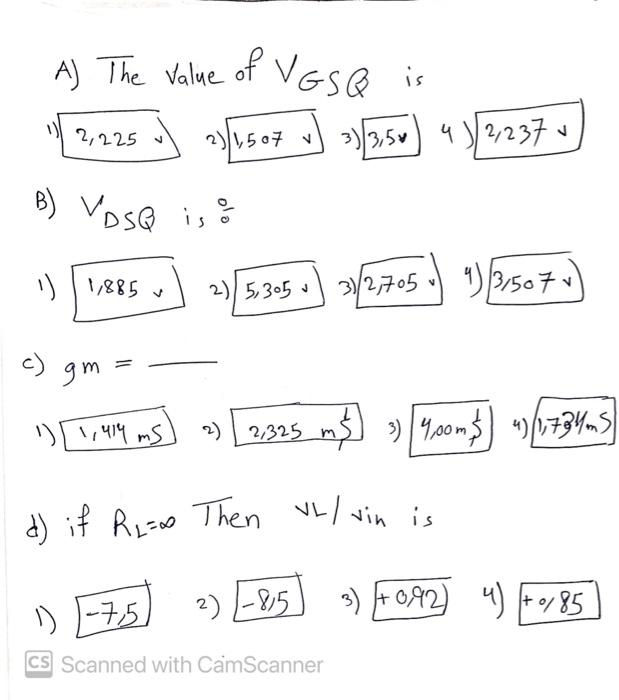 A) The Value of VGSQ is
1) 2,225 v 2) 1,507 v 3) 3,5v 4) 2,237 v
B) VDSQ is :
1) 1,885 v 2) 5,305 v 3) 2,705 v 4) 3,507 v
c) gm = —
1) 1,414 mS 2) 2,325 mS 3) 4,00 mS 4) 1,734 mS
d) if RL=∞ Then VL/vin is
1) -7,5 2) -8,5 3) +0,92 4) +0,85
CS Scanned with CamScanner